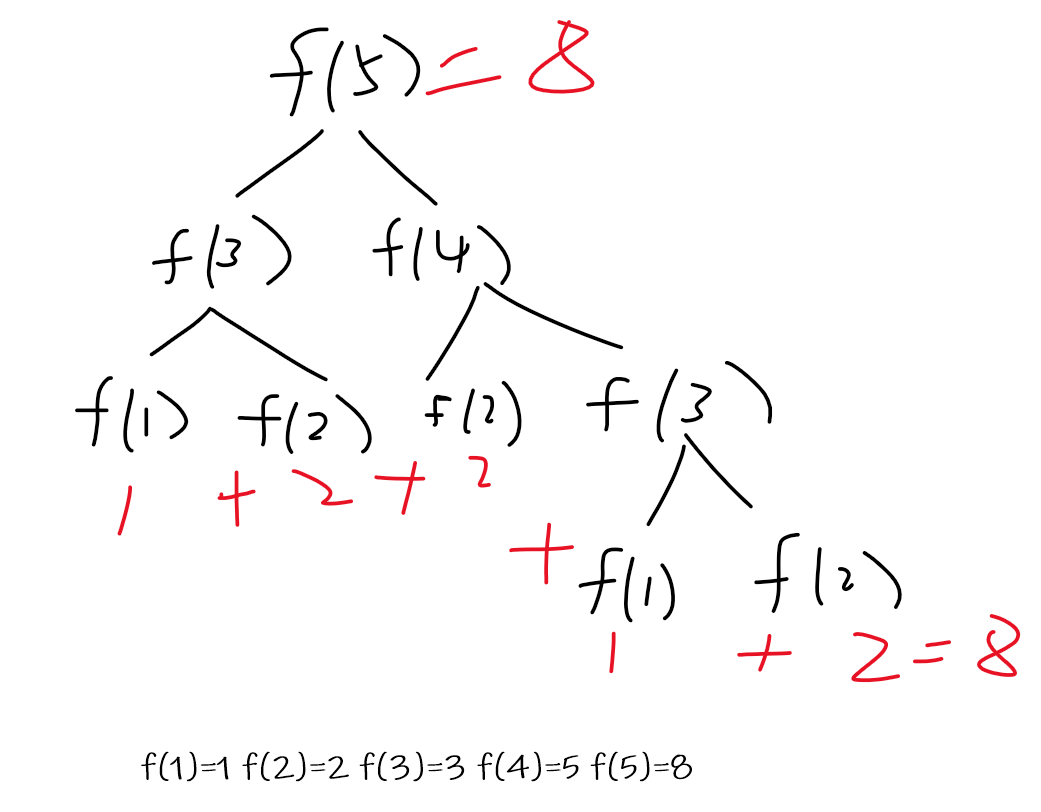 f(5) = 8
f(3) f(4)
f(1) f(2) f(2) f(3)
1 + 2 + 2
+ f(1) f(2)
1 + 2 = 8
f(1)=1 f(2)=2 f(3)=3 f(4)=5 f(5)=8